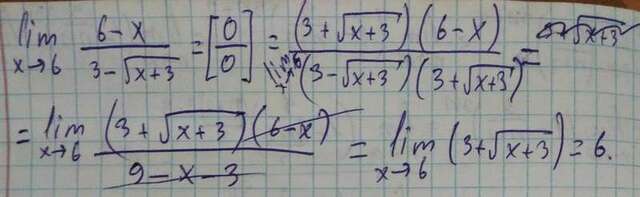 lim x→6 (6-x)/(3-√(x+3)) = [0/0] = lim x→6 ((3+√(x+3))(6-x))/((3-√(x+3))(3+√(x+3))) =
= lim x→6 ((3+√(x+3))(6-x))/(9-x-3) = lim x→6 (3+√(x+3)) = 6.